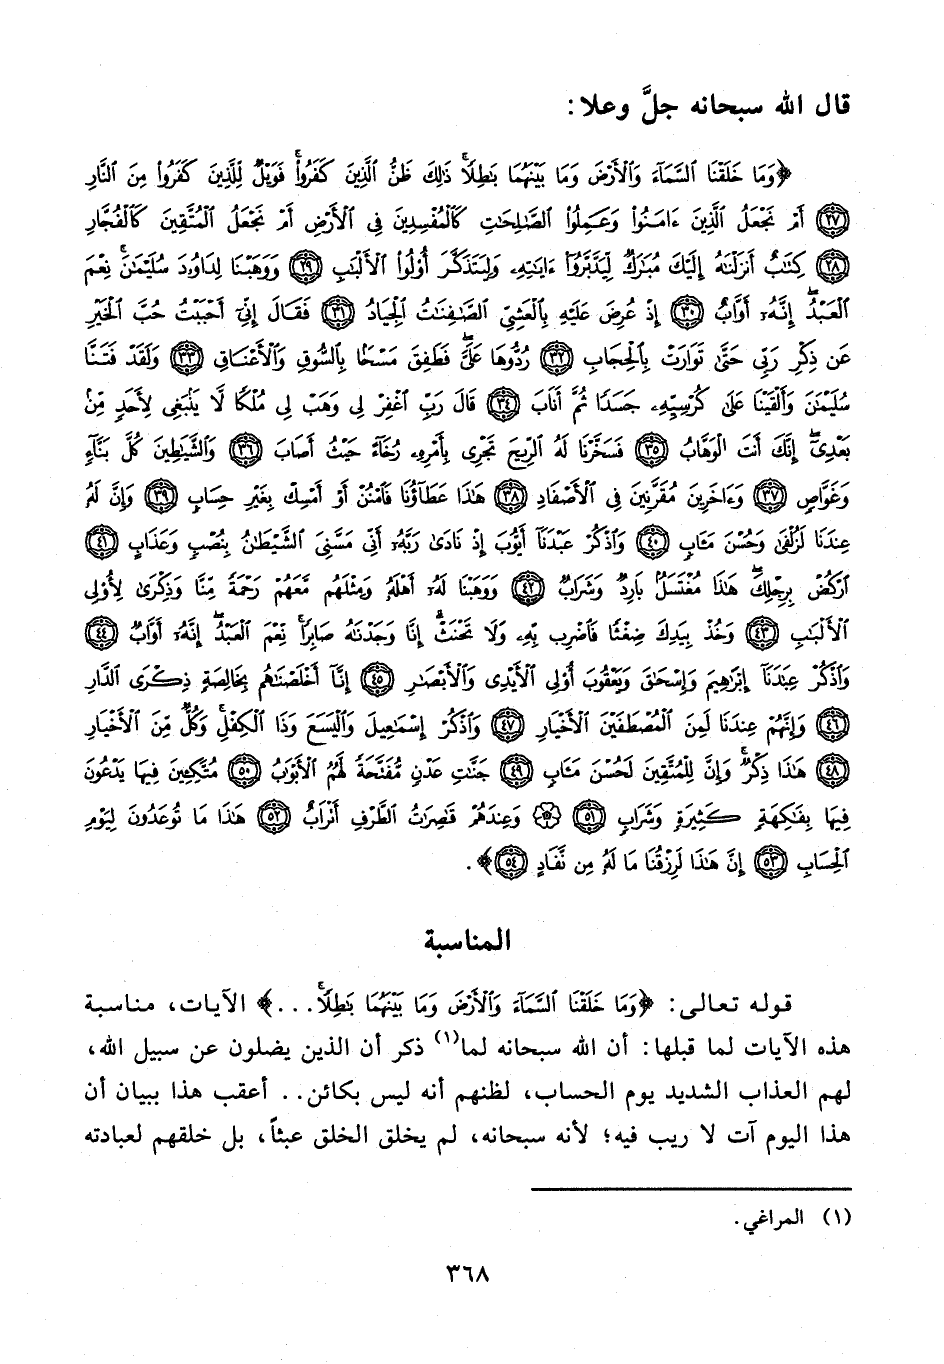 قال الله سبحانه جلَّ وعلا:
﴿وَمَا خَلَقْنَا ٱلسَّمَآءَ وَٱلْأَرْضَ وَمَا بَيْنَهُمَا بَٰطِلًاۚ ذَٰلِكَ ظَنُّ ٱلَّذِينَ كَفَرُوا۟ۚ فَوَيْلٌ لِّلَّذِينَ كَفَرُوا۟ مِنَ ٱلنَّارِ
﴿٢٧﴾ أَمْ نَجْعَلُ ٱلَّذِينَ ءَامَنُوا۟ وَعَمِلُوا۟ ٱلصَّٰلِحَٰتِ كَٱلْمُفْسِدِينَ فِى ٱلْأَرْضِ أَمْ نَجْعَلُ ٱلْمُتَّقِينَ كَٱلْفُجَّارِ
﴿٢٨﴾ كِتَٰبٌ أَنزَلْنَٰهُ إِلَيْكَ مُبَٰرَكٌ لِّيَدَّبَّرُوٓا۟ ءَايَٰتِهِۦ وَلِيَتَذَكَّرَ أُو۟لُوا۟ ٱلْأَلْبَٰبِ ﴿٢٩﴾ وَوَهَبْنَا لِدَاوُۥدَ سُلَيْمَٰنَۚ نِعْمَ
ٱلْعَبْدُۖ إِنَّهُۥٓ أَوَّابٌ ﴿٣٠﴾ إِذْ عُرِضَ عَلَيْهِ بِٱلْعَشِىِّ ٱلصَّٰفِنَٰتُ ٱلْجِيَادُ ﴿٣١﴾ فَقَالَ إِنِّىٓ أَحْبَبْتُ حُبَّ ٱلْخَيْرِ
عَن ذِكْرِ رَبِّى حَتَّىٰ تَوَارَتْ بِٱلْحِجَابِ ﴿٣٢﴾ رُدُّوهَا عَلَىَّۖ فَطَفِقَ مَسْحًۢا بِٱلسُّوقِ وَٱلْأَعْنَاقِ ﴿٣٣﴾ وَلَقَدْ فَتَنَّا
سُلَيْمَٰنَ وَأَلْقَيْنَا عَلَىٰ كُرْسِيِّهِۦ جَسَدًا ثُمَّ أَنَابَ ﴿٣٤﴾ قَالَ رَبِّ ٱغْفِرْ لِى وَهَبْ لِى مُلْكًا لَّا يَنۢبَغِى لِأَحَدٍ مِّنۢ
بَعْدِىٓۖ إِنَّكَ أَنتَ ٱلْوَهَّابُ ﴿٣٥﴾ فَسَخَّرْنَا لَهُ ٱلرِّيحَ تَجْرِى بِأَمْرِهِۦ رُخَآءً حَيْثُ أَصَابَ ﴿٣٦﴾ وَٱلشَّيَٰطِينَ كُلَّ بَنَّآءٍ
وَغَوَّاصٍ ﴿٣٧﴾ وَءَاخَرِينَ مُقَرَّنِينَ فِى ٱلْأَصْفَادِ ﴿٣٨﴾ هَٰذَا عَطَآؤُنَا فَٱمْنُنْ أَوْ أَمْسِكْ بِغَيْرِ حِسَابٍ ﴿٣٩﴾ وَإِنَّ لَهُۥ
عِندَنَا لَزُلْفَىٰ وَحُسْنَ مَـَٔابٍ ﴿٤٠﴾ وَٱذْكُرْ عَبْدَنَآ أَيُّوبَ إِذْ نَادَىٰ رَبَّهُۥٓ أَنِّى مَسَّنِىَ ٱلشَّيْطَٰنُ بِنُصْبٍ وَعَذَابٍ ﴿٤١﴾
ٱرْكُضْ بِرِجْلِكَۖ هَٰذَا مُغْتَسَلٌۢ بَارِدٌ وَشَرَابٌ ﴿٤٢﴾ وَوَهَبْنَا لَهُۥٓ أَهْلَهُۥ وَمِثْلَهُم مَّعَهُمْ رَحْمَةً مِّنَّا وَذِكْرَىٰ لِأُو۟لِى
ٱلْأَلْبَٰبِ ﴿٤٣﴾ وَخُذْ بِيَدِكَ ضِغْثًا فَٱضْرِب بِّهِۦ وَلَا تَحْنَثْۗ إِنَّا وَجَدْنَٰهُ صَابِرًاۚ نِّعْمَ ٱلْعَبْدُۖ إِنَّهُۥٓ أَوَّابٌ ﴿٤٤﴾
وَٱذْكُرْ عِبَٰدَنَآ إِبْرَٰهِيمَ وَإِسْحَٰقَ وَيَعْقُوبَ أُو۟لِى ٱلْأَيْدِى وَٱلْأَبْصَٰرِ ﴿٤٥﴾ إِنَّآ أَخْلَصْنَٰهُم بِخَالِصَةٍ ذِكْرَى ٱلدَّارِ
﴿٤٦﴾ وَإِنَّهُمْ عِندَنَا لَمِنَ ٱلْمُصْطَفَيْنَ ٱلْأَخْيَارِ ﴿٤٧﴾ وَٱذْكُرْ إِسْمَٰعِيلَ وَٱلْيَسَعَ وَذَا ٱلْكِفْلِۖ وَكُلٌّ مِّنَ ٱلْأَخْيَارِ
﴿٤٨﴾ هَٰذَا ذِكْرٌۚ وَإِنَّ لِلْمُتَّقِينَ لَحُسْنَ مَـَٔابٍ ﴿٤٩﴾ جَنَّٰتِ عَدْنٍ مُّفَتَّحَةً لَّهُمُ ٱلْأَبْوَٰبُ ﴿٥٠﴾ مُتَّكِـِٔينَ فِيهَا يَدْعُونَ
فِيهَا بِفَٰكِهَةٍ كَثِيرَةٍ وَشَرَابٍ ﴿٥١﴾ ۞ وَعِندَهُمْ قَٰصِرَٰتُ ٱلطَّرْفِ أَتْرَابٌ ﴿٥٢﴾ هَٰذَا مَا تُوعَدُونَ لِيَوْمِ
ٱلْحِسَابِ ﴿٥٣﴾ إِنَّ هَٰذَا لَرِزْقُنَا مَا لَهُۥ مِن نَّفَادٍ ﴿٥٤﴾﴾.
المناسبة
قوله تعالى: ﴿وَمَا خَلَقْنَا ٱلسَّمَآءَ وَٱلْأَرْضَ وَمَا بَيْنَهُمَا بَٰطِلًاۚ...﴾ الآيات، مناسبة
هذه الآيات لما قبلها: أن الله سبحانه لما(١) ذكر أن الذين يضلون عن سبيل الله،
لهم العذاب الشديد يوم الحساب، لظنهم أنه ليس بكائن.. أعقب هذا ببيان أن
هذا اليوم آت لا ريب فيه؛ لأنه سبحانه، لم يخلق الخلق عبثاً، بل خلقهم لعبادته
(١) المراغي.
٣٦٨